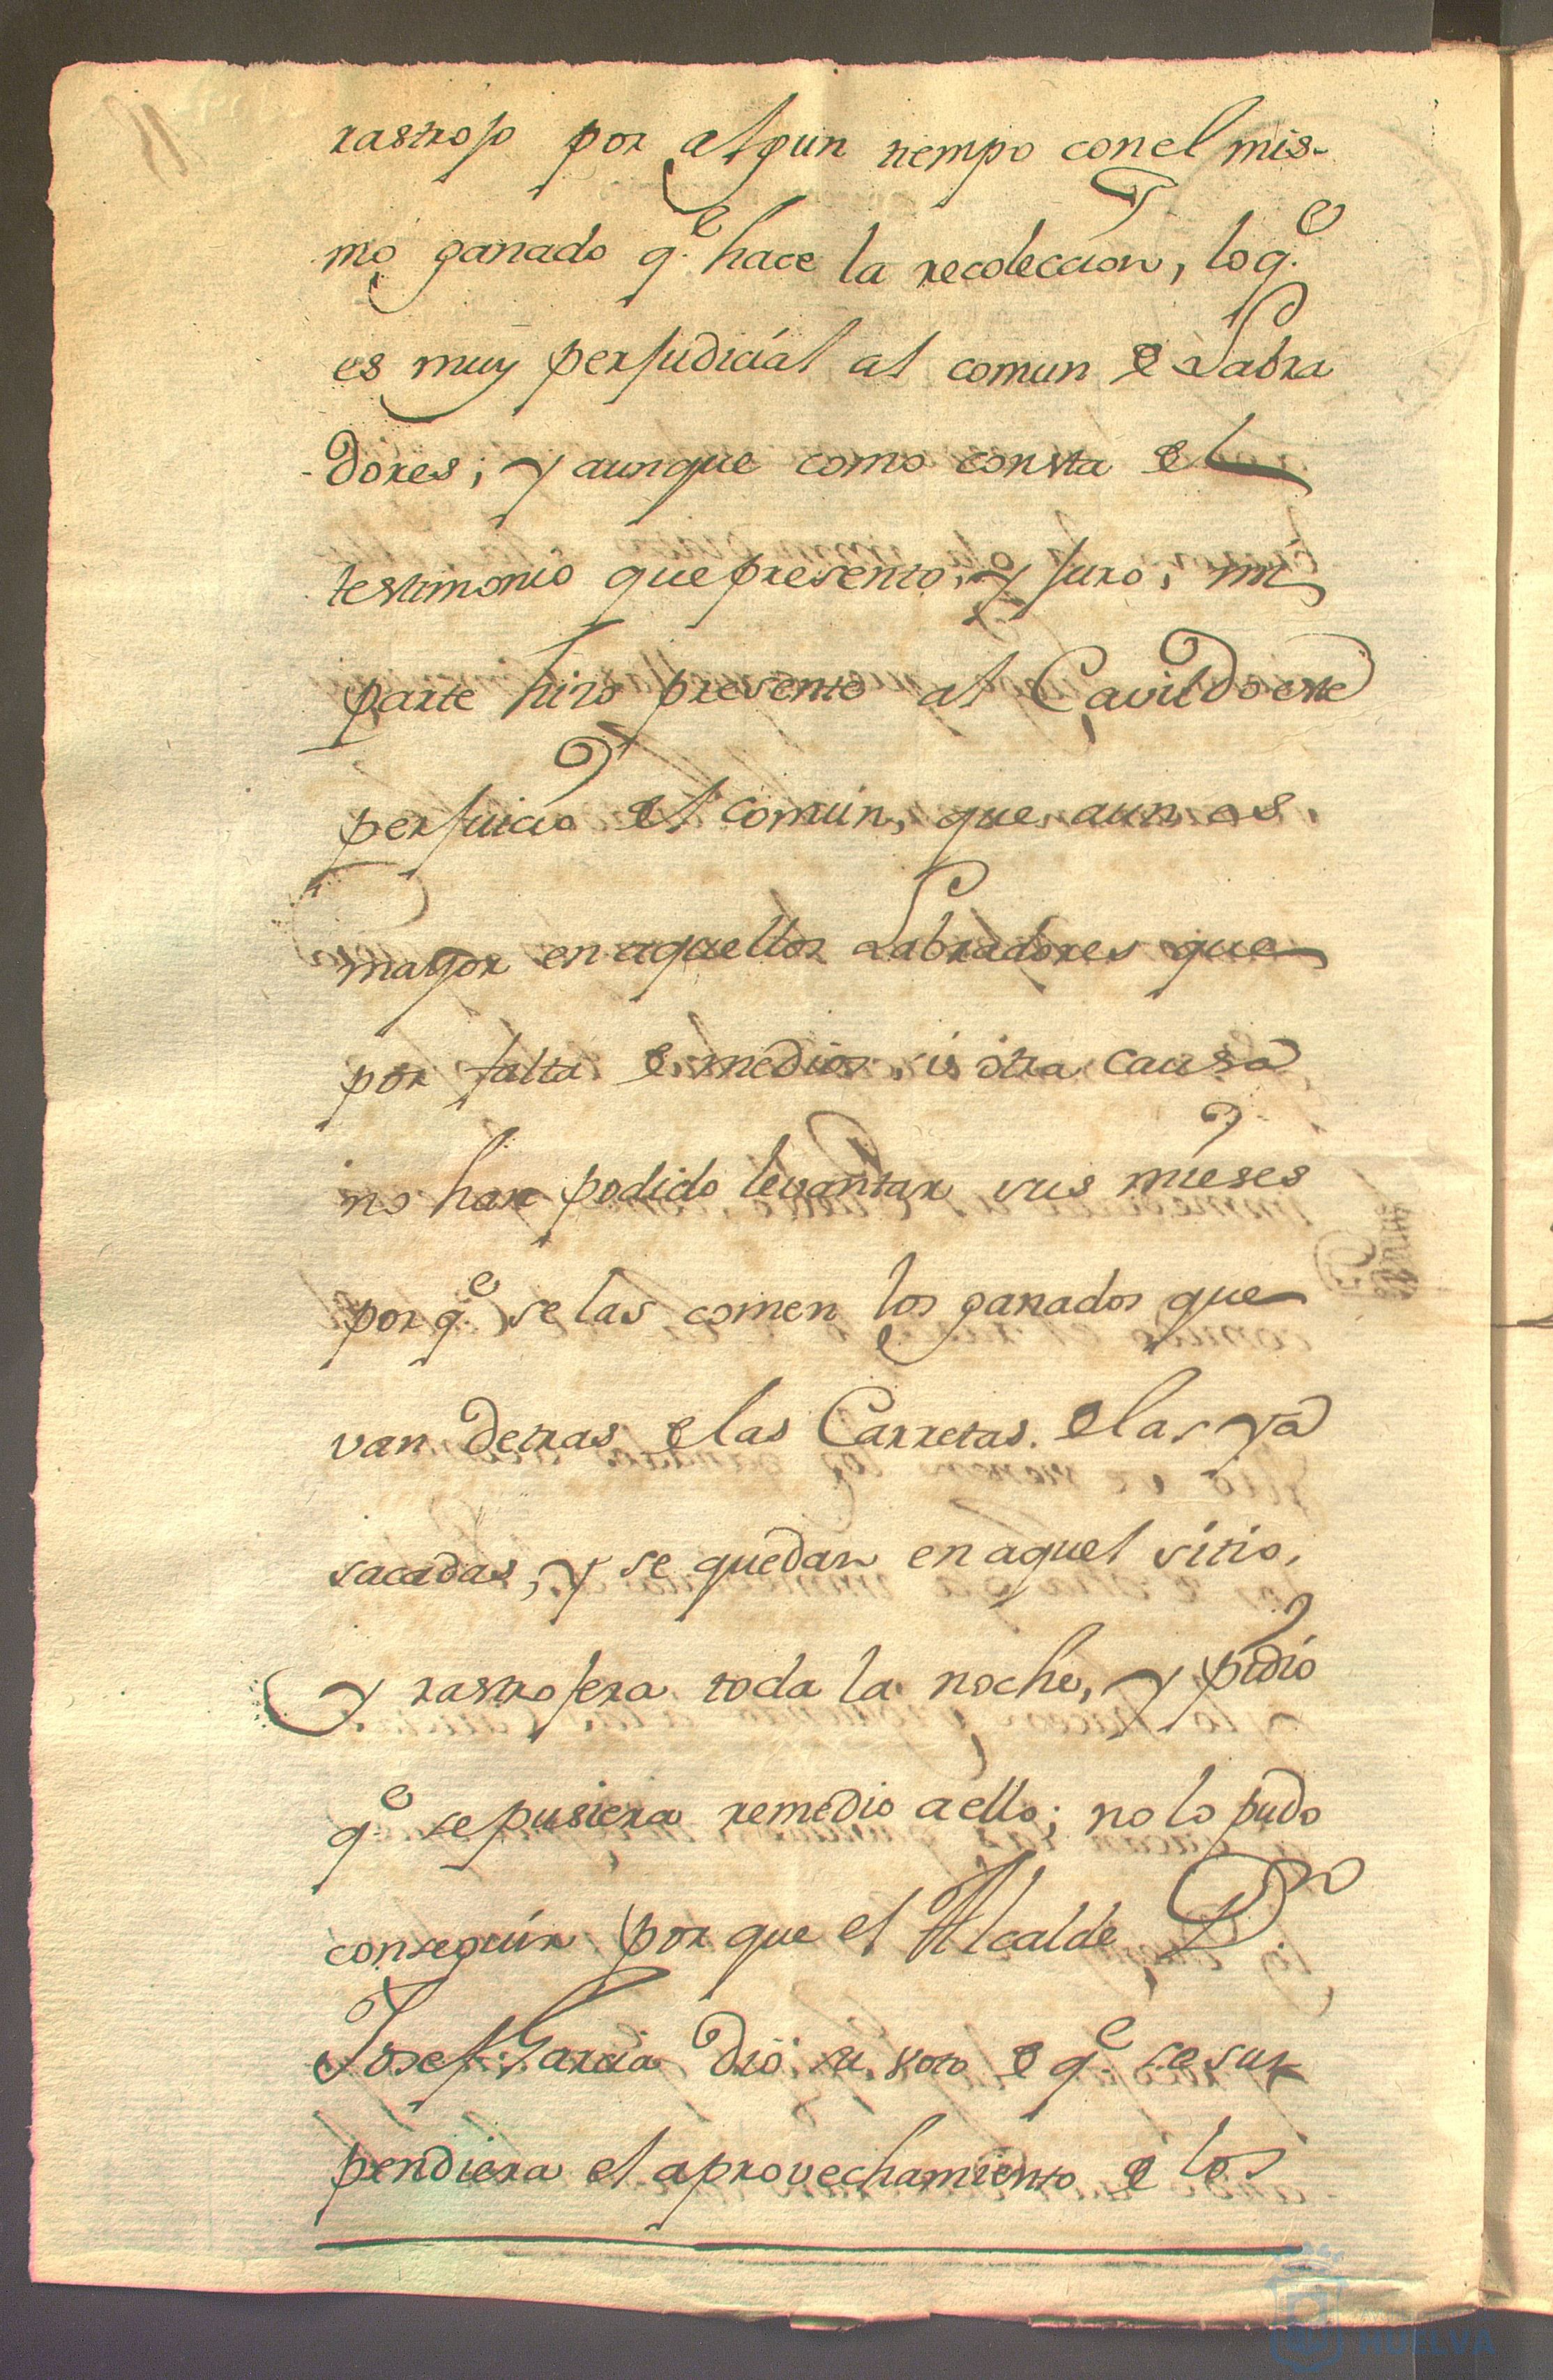 rastrojo por algun tiempo con el mis-
mo ganado q.e hace la recoleccion, lo q.e
es muy perjudicial al comun de Labra
-dores; y aunque como consta del
testimonio que presento, y juro, mi
parte hizo presente al Cavildo este
perjuicio del comun, que aun es
mayor en aquellos Labradores que
por falta de medios, ú otra causa
no han podido levantar sus mieses
por q.e se las comen los ganados que
van detras de las Carretas de las ya
sacadas, y se quedan en aquel sitio,
y rastrojera toda la noche, y pidió
q.e se pusiera remedio a ello; no lo pudo
conseguir por que el Alcalde D.n
Josef Garcia dio su voto de q.e se sus
pendiera el aprovechamiento de los
HUELVA